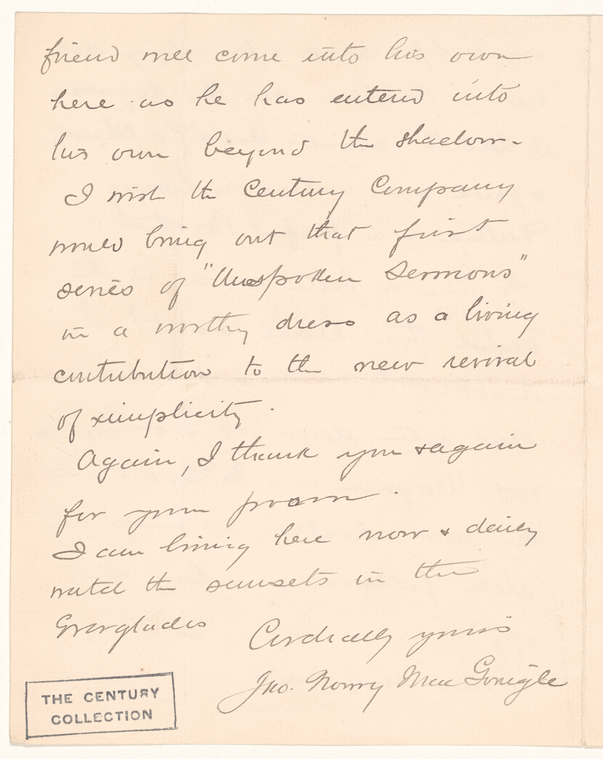 friend will come into his own
here as he has entered into
his own beyond the shadow.
I wish the Century Company
would bring out that first
series of "Unspoken Sermons"
in a worthy dress as a living
contribution to the new revival
of simplicity.
Again, I thank you & again
for your poem.
I am living here now & daily
watch the sunsets in the
Everglades
Cordially yours
Jno. Nowry Mac Gonigle
THE CENTURY
COLLECTION